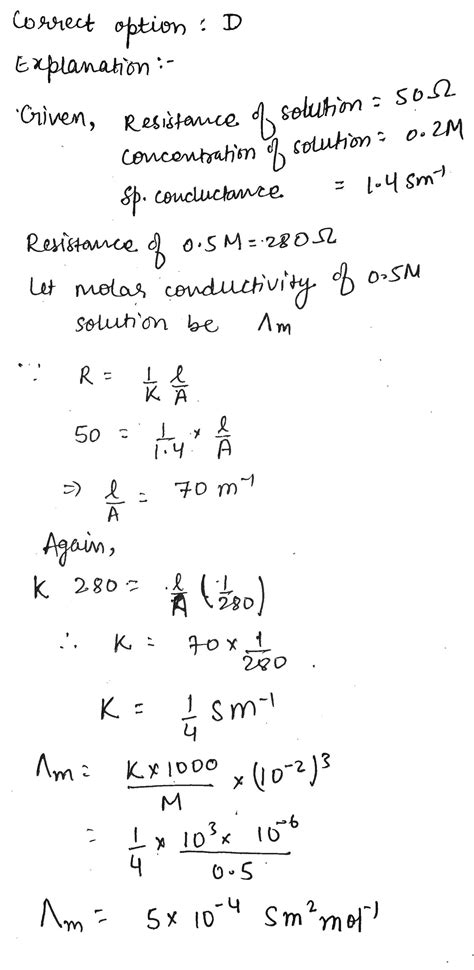 Correct option : D
Explanation :-
Given, Resistance of solution = 50Ω
Concentration of solution = 0.2M
Sp. conductance = 1.4 Sm⁻¹
Resistance of 0.5M = 280Ω
Let molar conductivity of 0.5M
solution be Λm
∵ R = 1/K l/A
50 = 1/1.4 × l/A
⇒ l/A = 70 m⁻¹
Again,
K 280 = l/A (1/280)
∴ K = 70 × 1/280 .
K = 1/4 Sm⁻¹
Λm = K×1000/M × (10⁻²)³
= 1/4 × 10³ × 10⁻⁶/0.5
Λm = 5 × 10⁻⁴ Sm² mol⁻¹